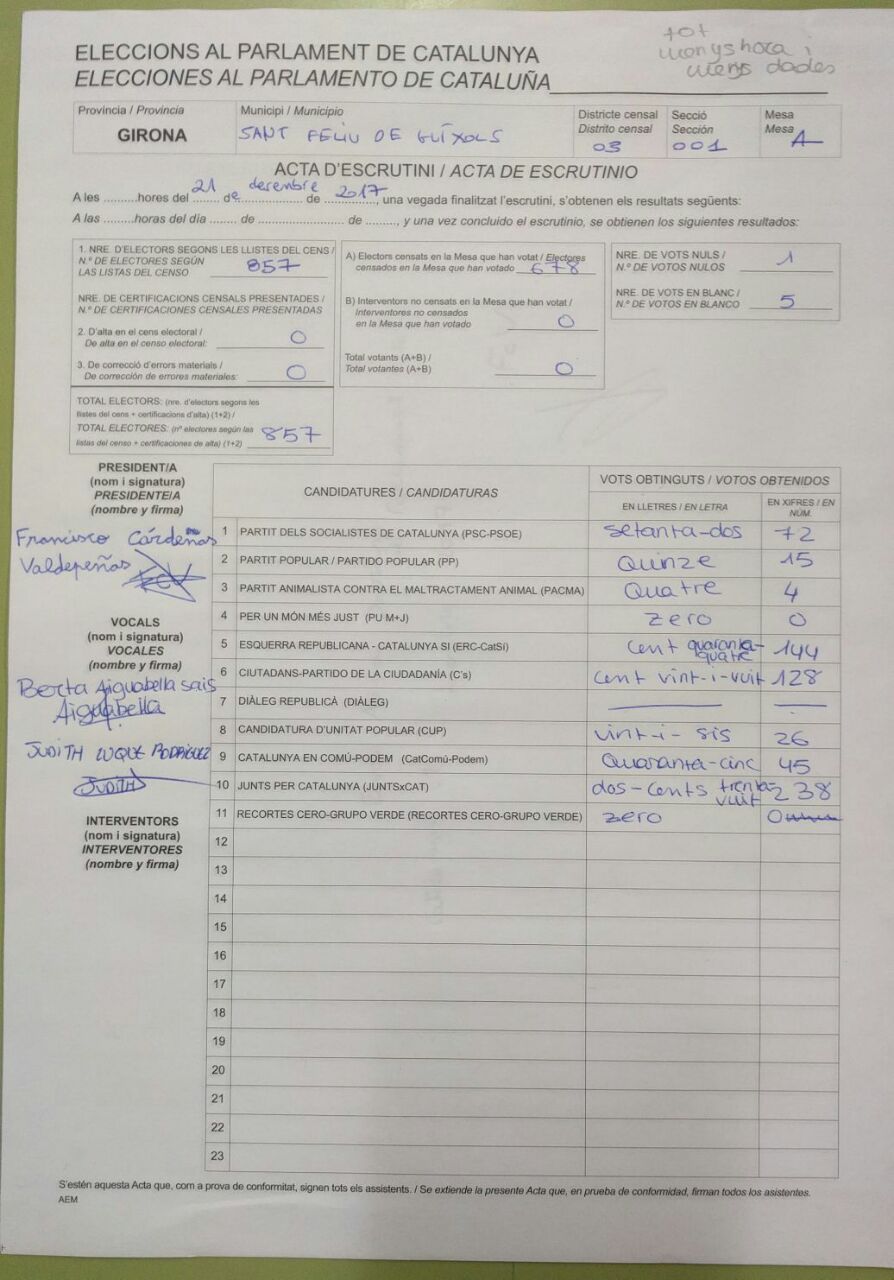 tot
menys hora i
menys dades
ELECCIONS AL PARLAMENT DE CATALUNYA
ELECCIONES AL PARLAMENTO DE CATALUÑA
Provincia / Provincia
GIRONA
Municipi / Municipio
SANT FELIU DE GUÍXOLS
Districte censal
Distrito censal
03
Secció
Sección
001
Mesa
Mesa
A
ACTA D'ESCRUTINI / ACTA DE ESCRUTINIO
A les ..........hores del 21 de desembre de 2017, una vegada finalitzat l'escrutini, s'obtenen els resultats següents:
A las .........horas del día ........ de ........................ de .........., y una vez concluido el escrutinio, se obtienen los siguientes resultados:
1. NRE. D'ELECTORS SEGONS LES LLISTES DEL CENS /
N.º DE ELECTORES SEGÚN
LAS LISTAS DEL CENSO
857
NRE. DE CERTIFICACIONS CENSALS PRESENTADES /
N.º DE CERTIFICACIONES CENSALES PRESENTADAS
2. D'alta en el cens electoral /
De alta en el censo electoral:
0
3. De correcció d'errors materials /
De corrección de errores materiales:
0
TOTAL ELECTORS: (nre. d'electors segons les
llistes del cens + certificacions d'alta) (1+2) /
TOTAL ELECTORES: (nº electores según las
listas del censo + certificaciones de alta) (1+2)
857
A) Electors censats en la Mesa que han votat / Electores
censados en la Mesa que han votado
678
B) Interventors no censats en la Mesa que han votat /
Interventores no censados
en la Mesa que han votado
0
Total votants (A+B) /
Total votantes (A+B)
0
NRE. DE VOTS NULS /
N.º DE VOTOS NULOS
1
NRE. DE VOTS EN BLANC /
N.º DE VOTOS EN BLANCO
5
PRESIDENT/A
(nom i signatura)
PRESIDENTE/A
(nombre y firma)
Francisco Cárdeñas
Valdepeñas
VOCALS
(nom i signatura)
VOCALES
(nombre y firma)
Berta Aiguabella Sais
Aiguabella
JUDITH LUQUE RODRÍGUEZ
JUDITH
INTERVENTORS
(nom i signatura)
INTERVENTORES
(nombre y firma)
CANDIDATURES / CANDIDATURAS
VOTS OBTINGUTS / VOTOS OBTENIDOS
EN LLETRES / EN LETRA
EN XIFRES / EN NÚM.
1 PARTIT DELS SOCIALISTES DE CATALUNYA (PSC-PSOE) setanta-dos 72
2 PARTIT POPULAR / PARTIDO POPULAR (PP) Quinze 15
3 PARTIT ANIMALISTA CONTRA EL MALTRACTAMENT ANIMAL (PACMA) Quatre 4
4 PER UN MÓN MÉS JUST (PU M+J) zero 0
5 ESQUERRA REPUBLICANA - CATALUNYA SI (ERC-CatSí) cent quaranta-quatre 144
6 CIUTADANS-PARTIDO DE LA CIUDADANÍA (C's) cent vint-i-vuit 128
7 DIÀLEG REPUBLICÀ (DIÀLEG)
8 CANDIDATURA D'UNITAT POPULAR (CUP) vint-i-sis 26
9 CATALUNYA EN COMÚ-PODEM (CatComú-Podem) Quaranta-cinc 45
10 JUNTS PER CATALUNYA (JUNTSxCAT) dos-cents trenta-vuit 238
11 RECORTES CERO-GRUPO VERDE (RECORTES CERO-GRUPO VERDE) zero 0
12
13
14
15
16
17
18
19
20
21
22
23
S'estén aquesta Acta que, com a prova de conformitat, signen tots els assistents. / Se extiende la presente Acta que, en prueba de conformidad, firman todos los asistentes.
AEM